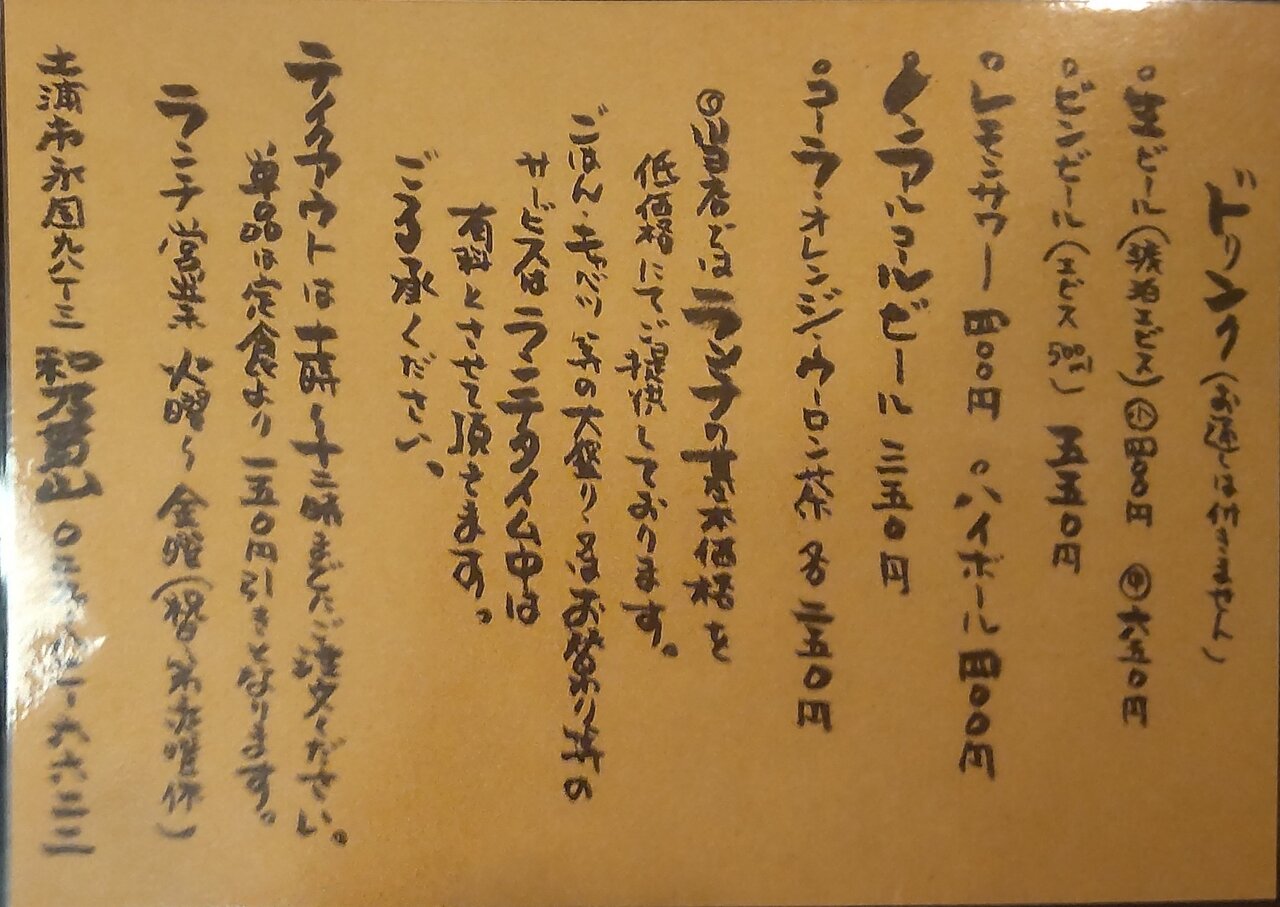 ドリンク(お通しは付きません)
○生ビール(琥珀エビス)㊥四〇〇円 ㊥六五〇円
○ビンビール(エビス500ml)五五〇円
○レモンサワー 四〇〇円 ○ハイボール四〇〇円
○ノンアルコールビール 三五〇円
○コーラ・オレンジ・ウーロン茶 各二五〇円
◎当店ではランチの基本価格を
低価格にてご提供しております。
ごはん・キャベツ等の大盛り、又はお替り等の
サービスはランチタイム中は
有料とさせて頂きます。
ご了承ください、
テイクアウトは十一時〜十三時までにご注文ください。
単品は定食より一五〇円引きとなります。
ランチ営業 火曜〜金曜(祝・第 曜休)
土浦市永国九八一-三 和乃葛山